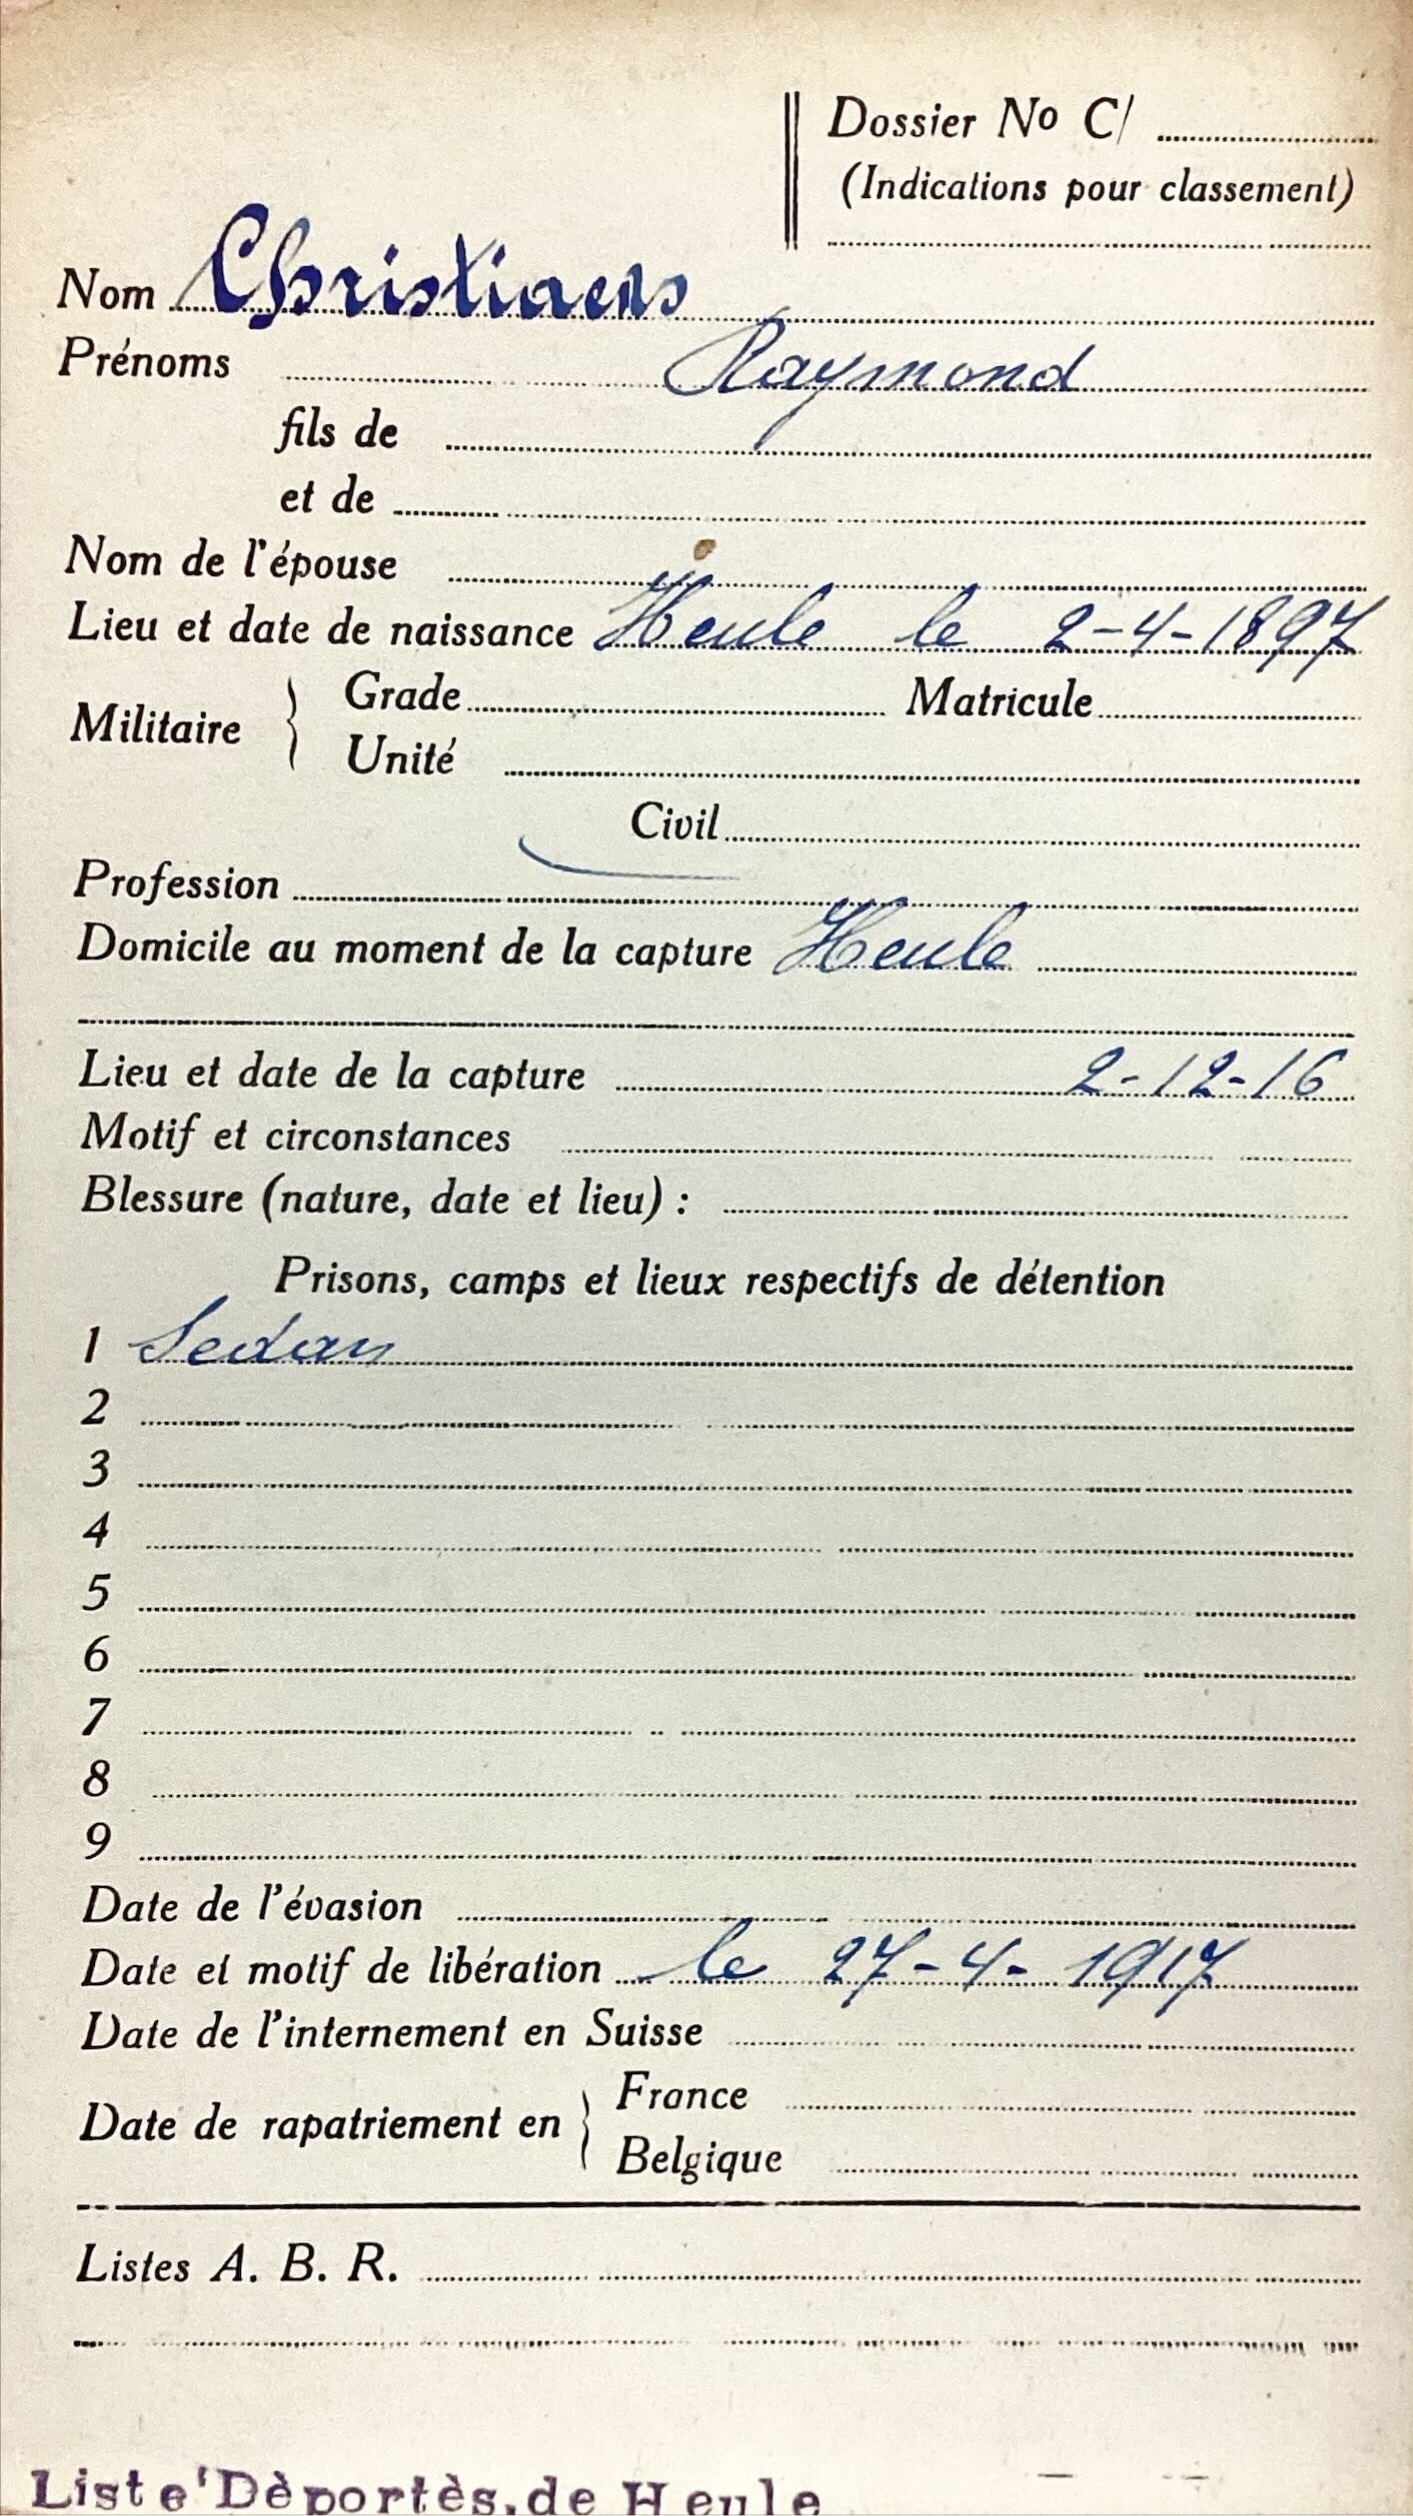 Dossier No C/
(Indications pour classement)
Nom Christiaens
Prénoms Raymond
fils de
et de
Nom de l'épouse
Lieu et date de naissance Heule le 2-4-1897
Militaire { Grade Matricule
Unité
Civil
Profession
Domicile au moment de la capture Heule
Lieu et date de la capture 2-12-16
Motif et circonstances
Blessure (nature, date et lieu) :
Prisons, camps et lieux respectifs de détention
1 Sedan
2
3
4
5
6
7
8
9
Date de l'évasion
Date et motif de libération le 27-4-1917
Date de l'internement en Suisse
Date de rapatriement en { France
Belgique
Listes A. B. R.
Liste'Dèportès.de Heule